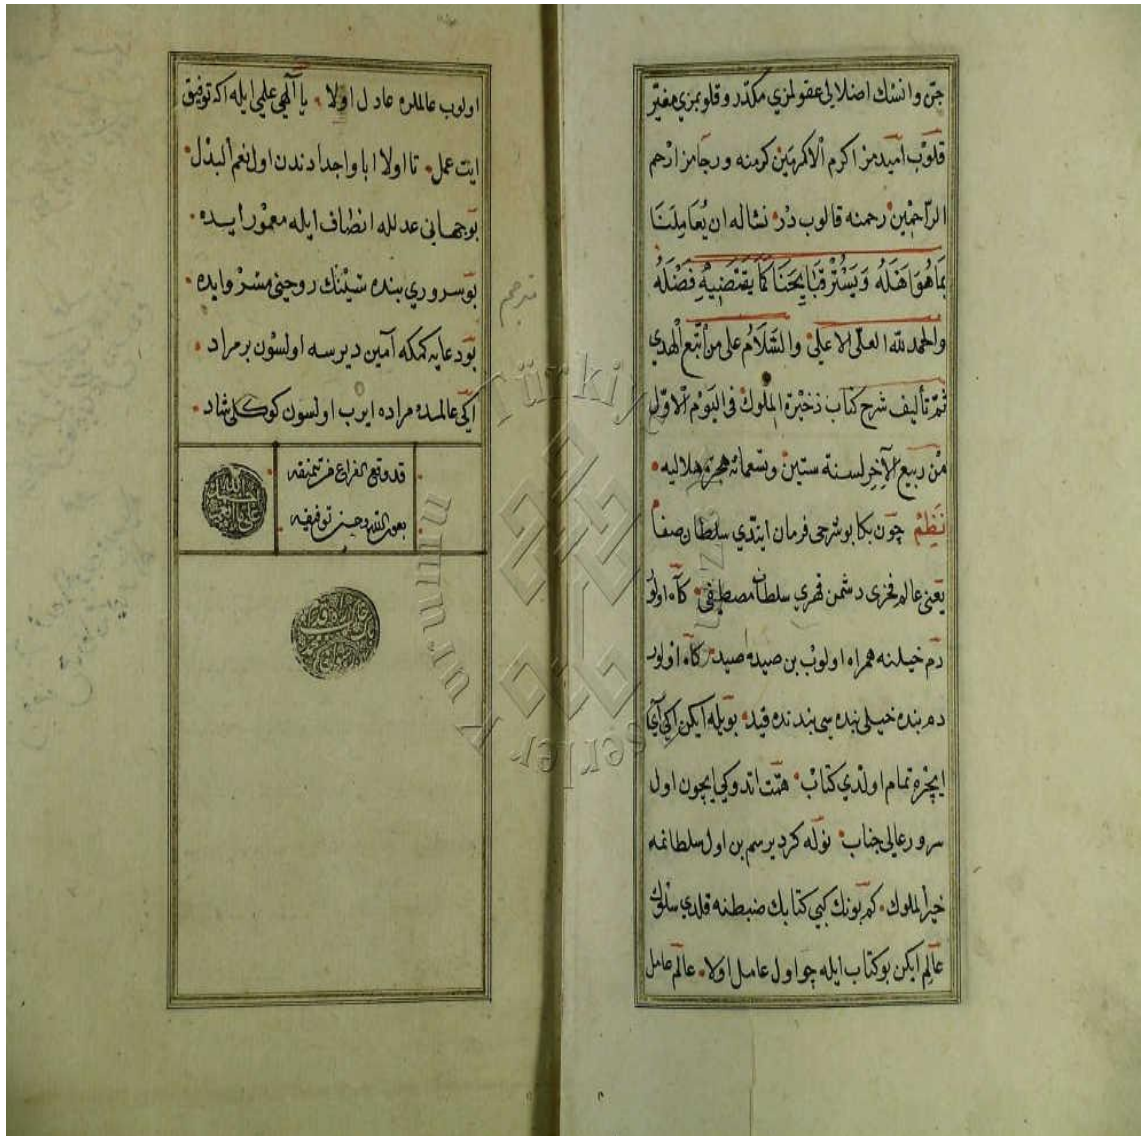 جن وانسك اضلالى عقولمزي مكدر وقلوبمزي مغير
قلوب اميدمز اكرم الاكرمين كرمنه ورجامز ارحم
الراحمين رحمنه قالوب در نسٔاله ان يعاملنا
بما هو اهله ويستر قبايحنا كما يقتضيه فضله
والحمد لله العلى الاعلى والسلام على من اتبع الهدي
ثم تأليف شرح كتاب ذخيرة الملوك فى اليوم الاول
من ربيع الآخر لسنة ستين وتسعمائه هجرة هلاليه
نظم چون بكا بو شرحى فرمان ايتدي سلطان صفا
يعنى عالم فخرى دشمن قهرى سلطان مصطفى كاه اولو
دم خيلنه همراه اولوب بن صيده صيد كاه اولور
دم بنده خيلى بنده سى بندنده قيد بويله ايكن اكى آى
ايچره تمام اولدي كتاب همت اتدوكيچون اول
سرور عالى جناب نوله كر ديرسم بن اول سلطانمه
خير الملوك كم بونك كبى كتابك ضبطنه قلدي سلوك
عالم ايكن بو كتاب ايله چو اول عامل اولا عالم عامل
اولوب عالملره عادل اولا يا آلهى علمى ايله اكه توفيق
ايت عمل تا اولا ابا واجدادندن اول نعم البدل
بو جهانى عدلله انصاف ايله معمور ايده
بو سروري بنده سينك روحنى مسرور ايده
بو دعايه كمكه آمين ديرسه اولسون بر مراد
اكى عالمده مراده ايرب اولسون كوكلى شاد
قد وقع الفراغ من تنميقه
بعون الله وحسن توفيقه
Türkiye Yazma Eserler Kurumu